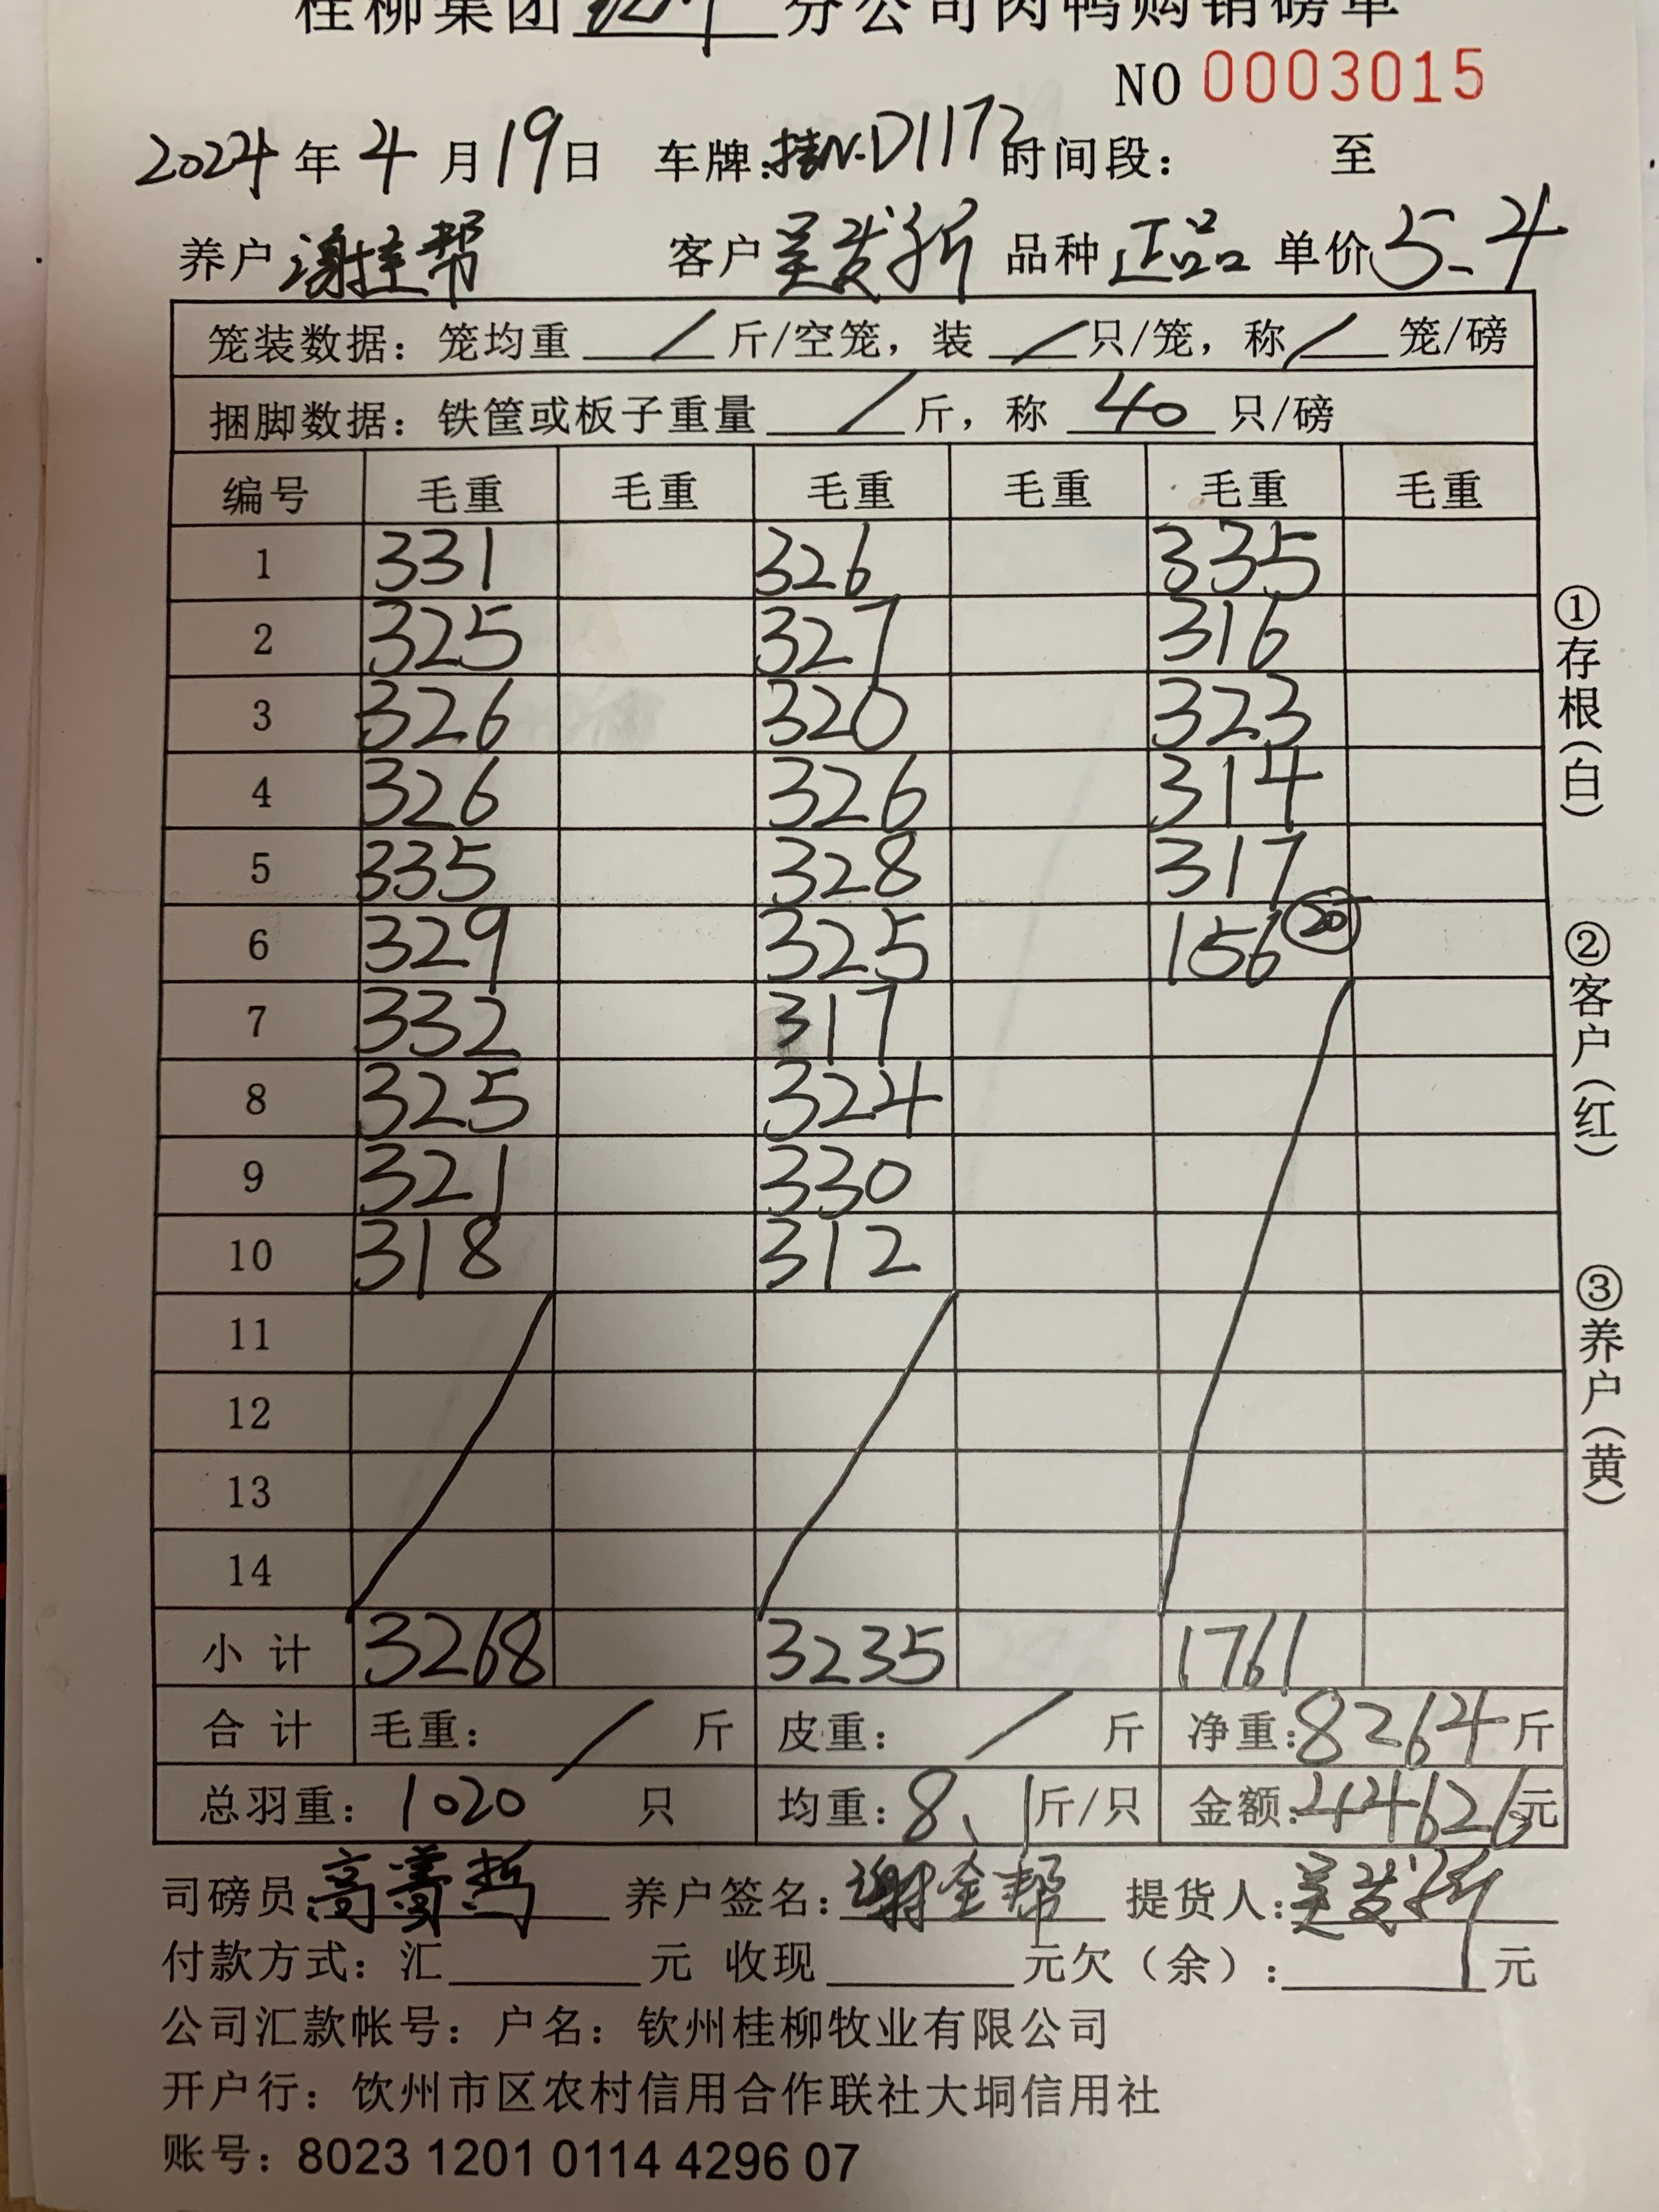 桂柳集团 钦州 分公司肉鸭购销磅单
NO 0003015
2024 年 4 月 19 日 车牌:桂N.D1173 时间段: 至
养户 谢金帮 客户 吴发新 品种 正品 单价 5.4
笼装数据: 笼均重 / 斤/空笼, 装 / 只/笼, 称 / 笼/磅
捆脚数据: 铁筐或板子重量 / 斤, 称 40 只/磅
编号 毛重 毛重 毛重 毛重 毛重 毛重
1 331 326 335
2 325 327 316
3 326 320 323
4 326 326 314
5 335 328 317
6 329 325 156 20
7 332 317
8 325 324
9 321 330
10 318 312
11
12
13
14
小计 3268 3235 1761
合计 毛重: / 斤 皮重: / 斤 净重:8264斤
总羽重: 1020 只 均重:8、1斤/只 金额:44626元
司磅员 高 哲 养户签名:谢金帮 提货人:吴发新
付款方式: 汇 元 收现 元欠(余): 元
公司汇款帐号: 户名: 钦州桂柳牧业有限公司
开户行: 钦州市区农村信用合作联社大垌信用社
账号: 8023 1201 0114 4296 07
①存根(白)
②客户(红)
③养户(黄)